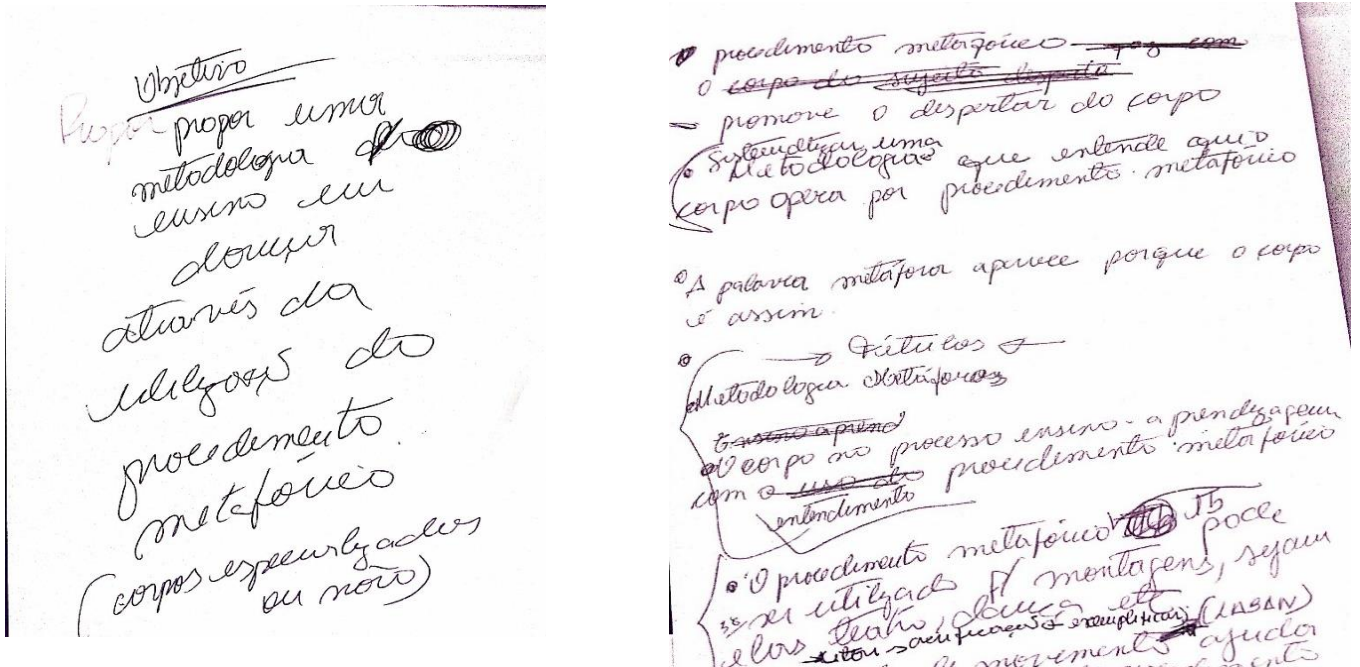 Objetivo
Propor propor uma
metodologia de
ensino em
dança
através da
utilização do
procedimento
metafórico
(corpos especializados
ou não)
O procedimento metafórico faz com
o corpo do sujeito desperta
promove o despertar do corpo
Sistematizar uma
Metodologia que entende que o
corpo opera por procedimento metafórico
A palavra metáfora aparece porque o corpo
é assim.
Títulos
Metodologia Metáforas
Ensino aprend
O corpo no processo ensino-aprendizagem
com o uso do procedimento metafórico
entendimento
O procedimento metafórico tb pode
ser utilizado p/ montagens, sejam
elas teatro, dança etc
exemplificar) (LABAN)
movimento ajuda